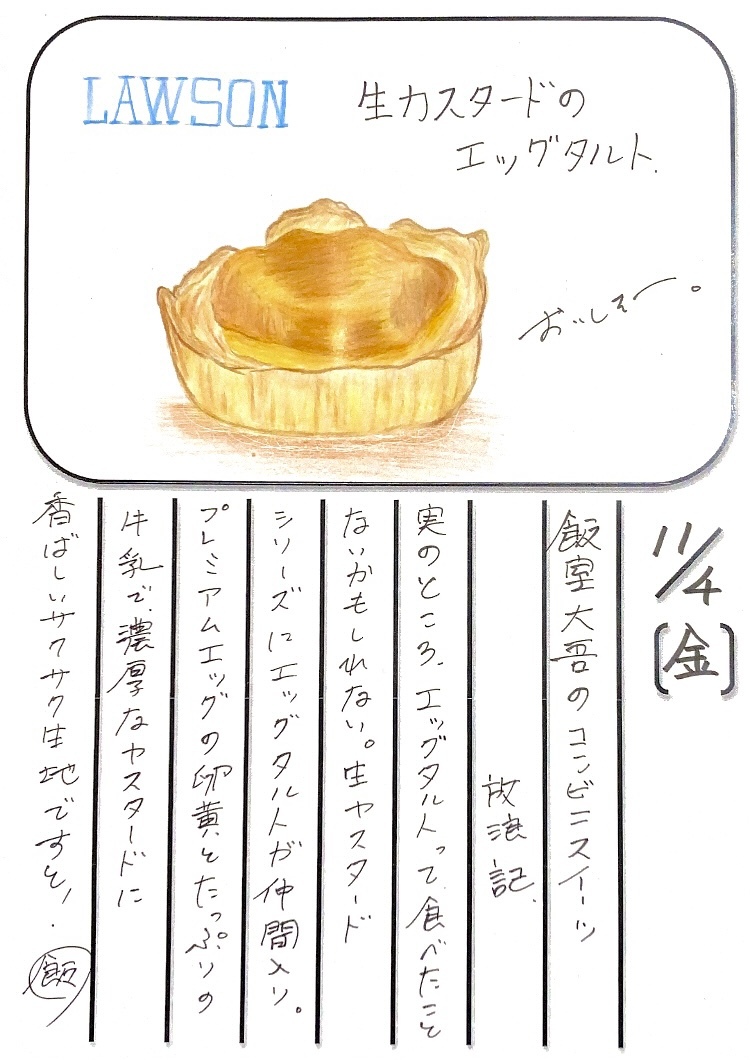 LAWSON
生カスタードの
エッグタルト.
おいしそー。
11/4
[金]
飯室大吾のコンビニスイーツ
放浪記.
実のところ、エッグタルトって食べたこと
ないかもしれない。生カスタード
シリーズにエッグタルトが仲間入り。
プレミアムエッグの卵黄とたっぷりの
牛乳で、濃厚なカスタードに
香ばしいサクサク生地ですと!.
飯